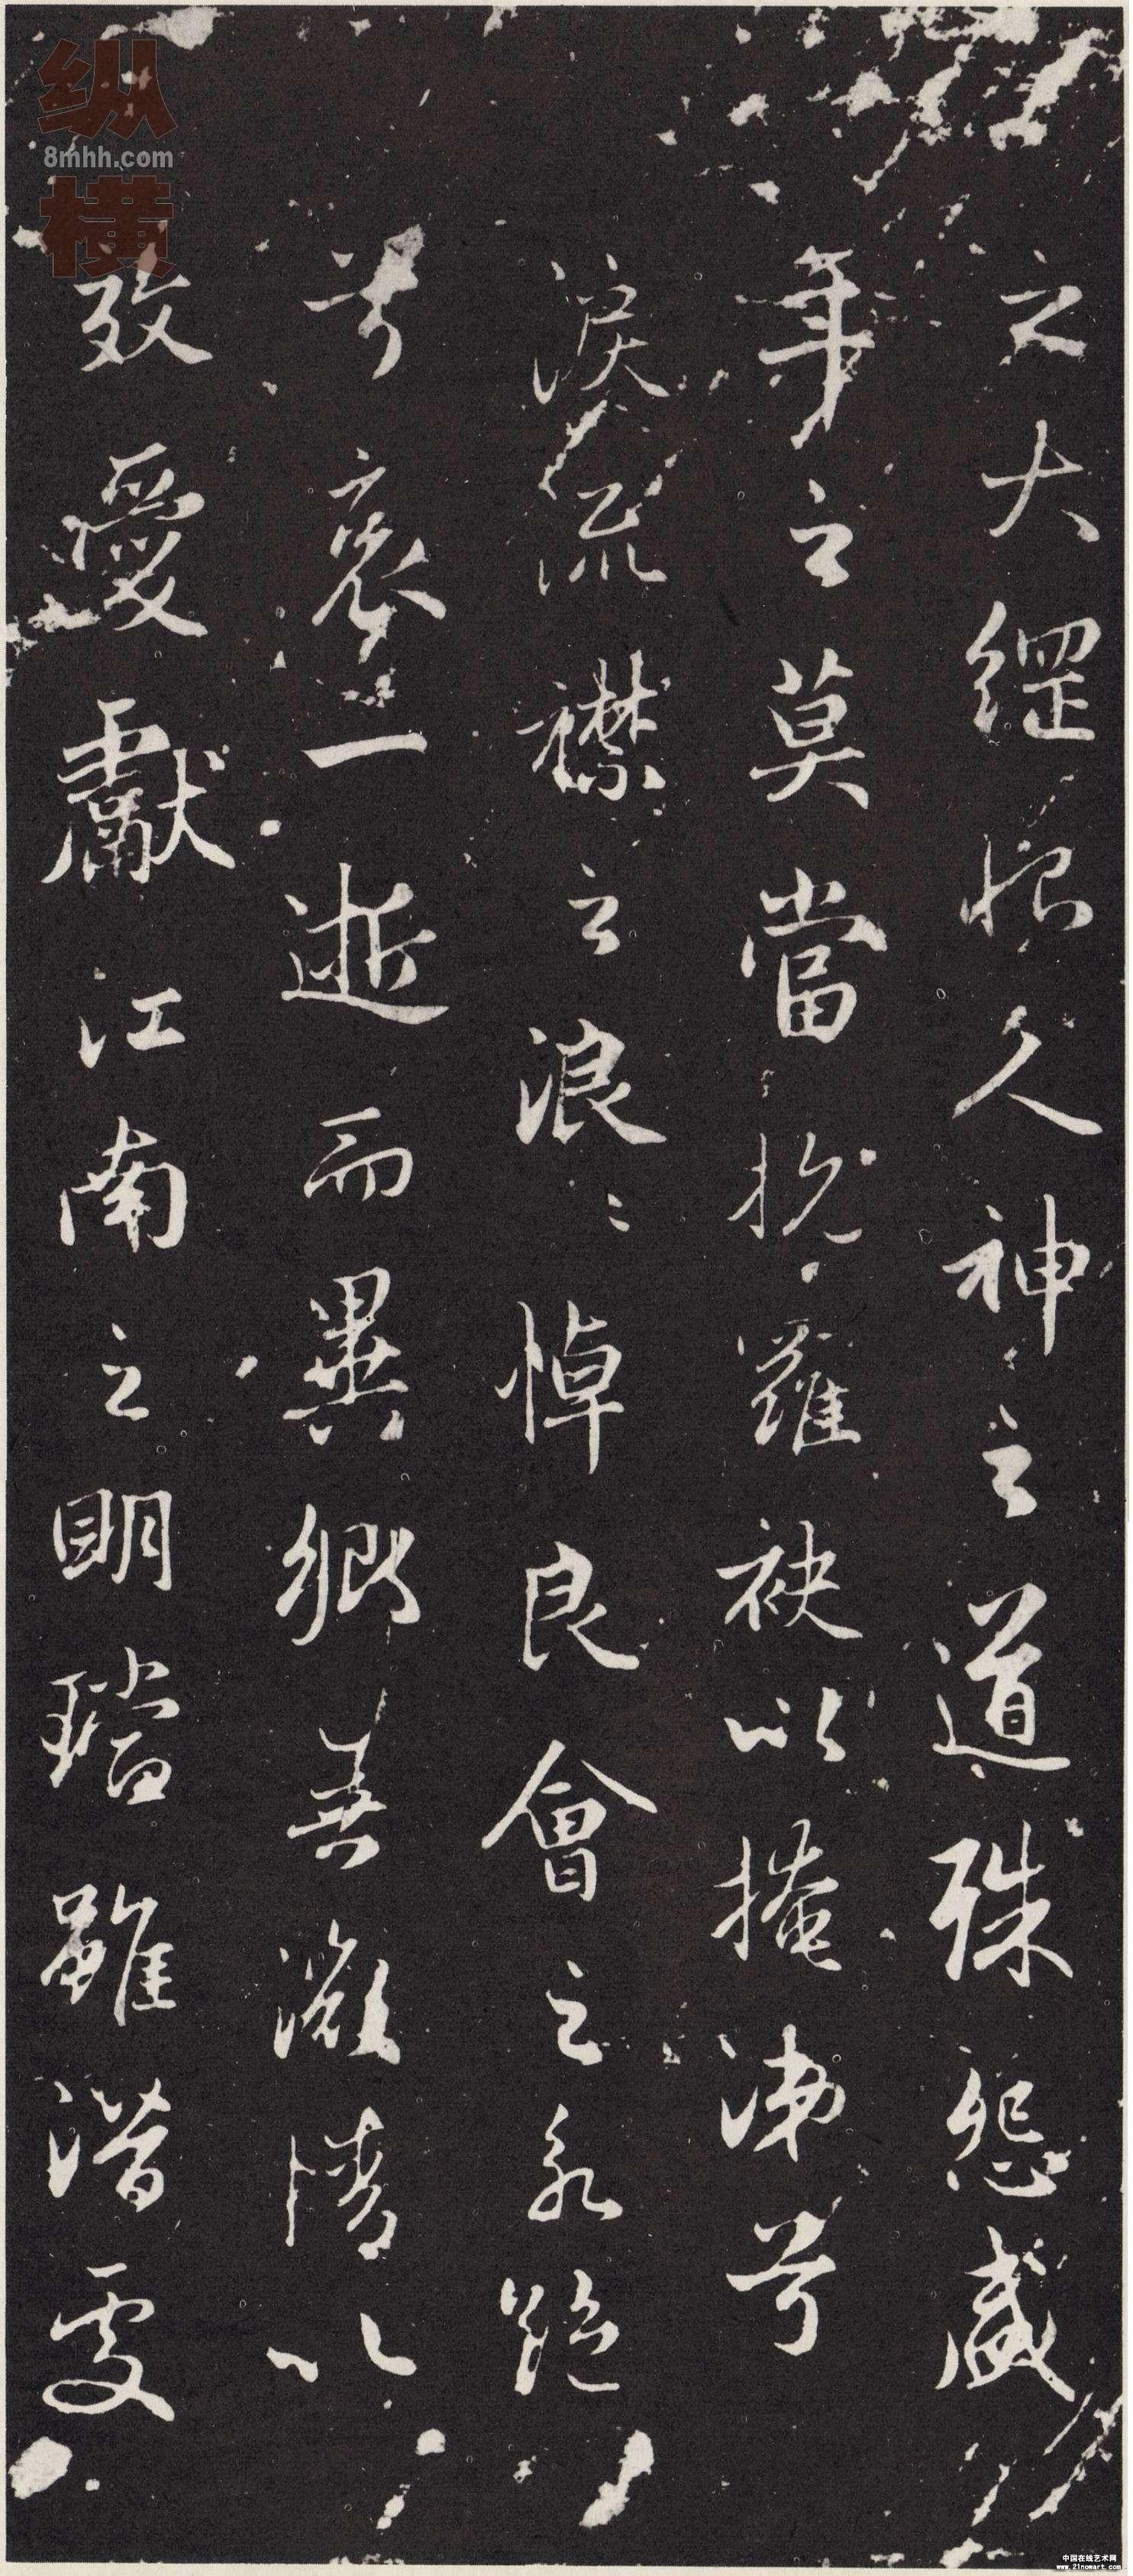 之大綱恨人神之道殊怨盛
年之莫當抗羅袂以掩涕兮
淚流襟之浪〻悼良會之永絕
兮哀一逝而異鄉無微情以
效愛獻江南之明璫雖潛處
纵横
8mhh.com
中国在线艺术网
www.21nowart.com